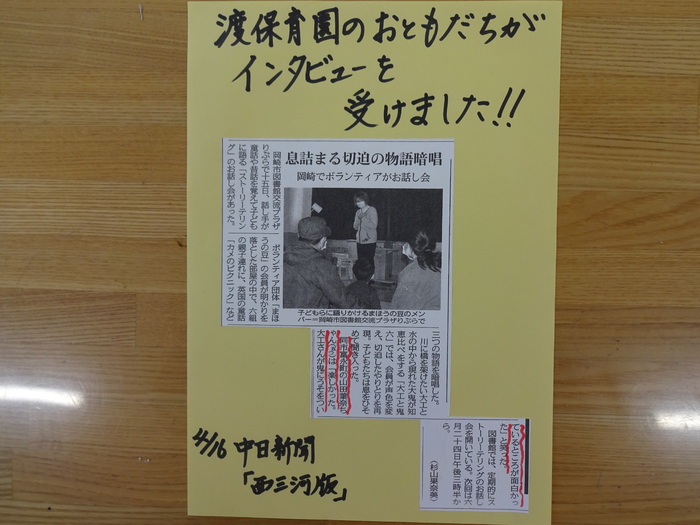 渡保育園のおともだちが
インタビューを
受けました!!
息詰まる切迫の物語暗唱
岡崎でボランティアがお話し会
岡崎市図書館交流プラザ
りぶらで十五日、話し手が
童話や昔話を覚えて子ども
に語る「ストーリーテリン
グ」のお話し会があった。
ボランティア団体「まほ
うの豆」の会員が明かりを
落とした部屋の中で、六組
の親子連れに、英国の童話
「カメのピクニック」など
子どもらに語りかけるまほうの豆のメン
バー=岡崎市図書館交流プラザりぶらで
三つの物語を暗唱した。
川に橋を架けたい大工と
水の中から現れた大鬼が知
恵比べをする「大工と鬼
六」では、会員が声色を変
え、切迫したやりとりを再
現。子どもたちは息をひそ
めて聞き入った。
同市富永町の山田葉奈ち
ゃん(5)は「楽しかった。
大工さんが鬼にうそをつい
ているところが面白かっ
た」と笑った。
図書館では、定期的にス
トーリーテリングのお話し
会を開いている。次回は六
月二十四日午後三時半か
ら。
(杉山果奈美)
4/16 中日新聞
「西三河版」